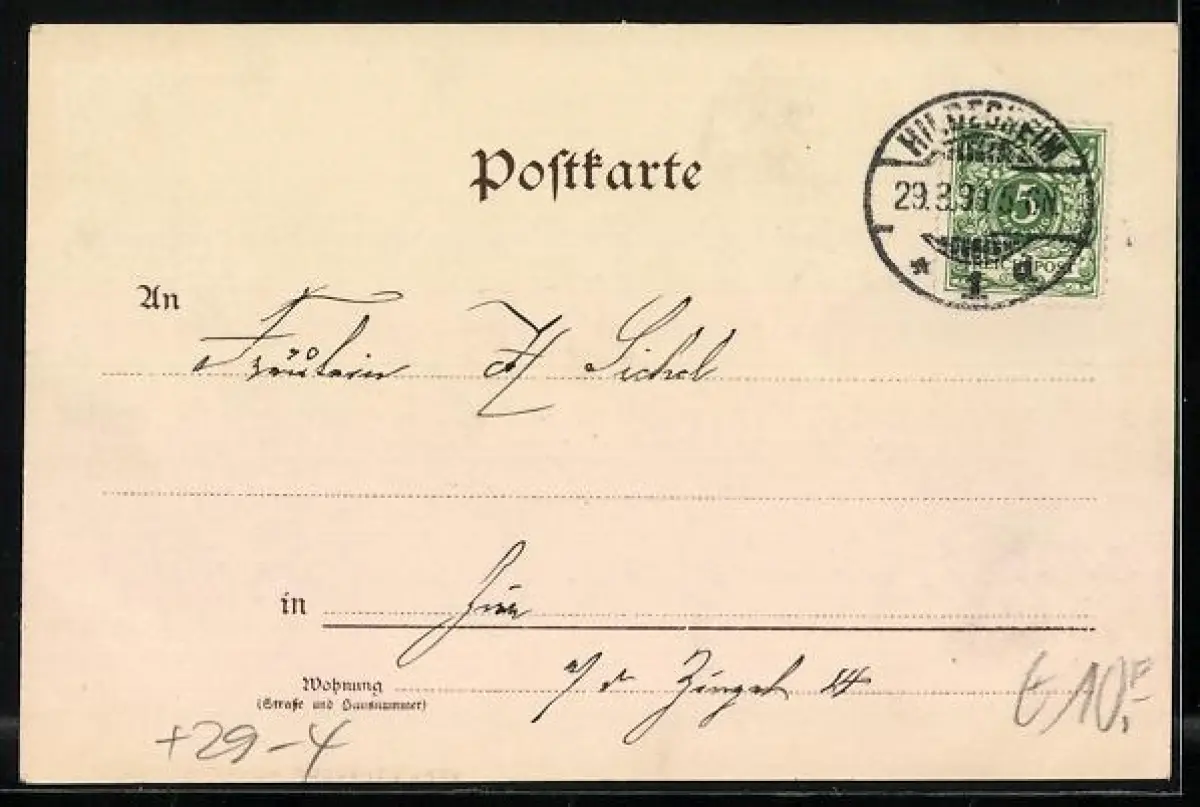 HILDESHEIM
29.3.99
* 1 d
5
REICHSPOST
Postkarte
An
Fräulein H Sichel
in
hier
Wohnung a/d Zingel 44
(Straße und Hausnummer)
+29-4
10.-